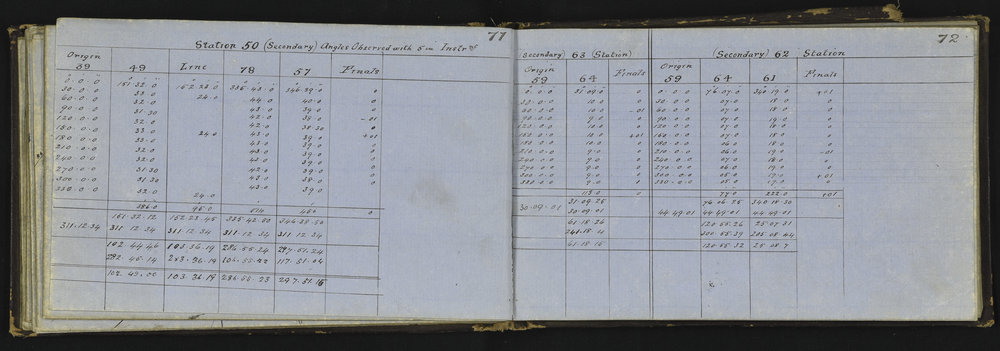 71
Station 50 (Secondary) Angles Observed with 5 in Instr
Origin 59 49 Line 78 57 Finals
0.0.0 151.32.0 152.23.0 335.43.0 346.39.0 0
30.0.0 33.0 24.0 44.0 40.0 0
60.0.0 32.0 43.0 39.0 0
90.0.0 31.30 42.0 38.0 -01
120.0.0 32.0 42.0 38.30 0
150.0.0 33.0 24.0 43.0 39.0 +01
180.0.0 33.0 43.0 39.0 0
210.0.0 32.0 43.0 39.0 0
240.0.0 32.0 43.0 39.0 0
270.0.0 31.30 42.0 39.0 0
300.0.0 31.30 43.0 38.0 0
330.0.0 32.0 24.0 43.0 39.0
386.0 95.0 0
151.32.12 152.23.45 335.42.50 346.38.50
311.12.34 311.12.34 311.12.34 311.12.34 311.12.34
102.44.46 103.36.19 286.55.24 297.51.24
282.45.14 283.36.19 106.55.22 117.51.04
102.45.00 103.36.19 286.55.23 297.51.15
72
(Secondary) 63 (Station)
Origin 59 64 Finals
0.0.0 31.09.0 0
30.0.0 10.0 0
60.0.0 10.0 -01
90.0.0 9.0 0
120.0.0 10.0 0
150.0.0 10.0 +01
180.0.0 10.0 0
210.0.0 9.0 0
240.0.0 9.0 0
270.0.0 9.0 0
300.0.0 9.0 0
330.0.0 9.0 0
113.0 0
31.09.25
30.09.01 30.09.01
61.18.26
241.18.11
61.18.16
(Secondary) 62 Station
Origin 59 64 61 Finals
0.0.0 76.07.0 340.19.0 +01
30.0.0 07.0 18.0 0
60.0.0 07.0 18.0 0
90.0.0 07.0 19.0 0
120.0.0 07.0 18.0 0
07.0 18.0 0
180.0.0 06.0 18.0 0
210.0.0 06.0 19.0 -01
240.0.0 07.0 18.0 0
270.0.0 06.0 19.0 0
300.0.0 05.0 17.0 +01
330.0.0 05.0 17.0 0
77.0 222.0 +01
76.06.25 340.18.30
44.49.01 44.49.01 44.49.01
120.55.26 25.07.31
300.55.39 205.08.44
120.55.32 25.08.7